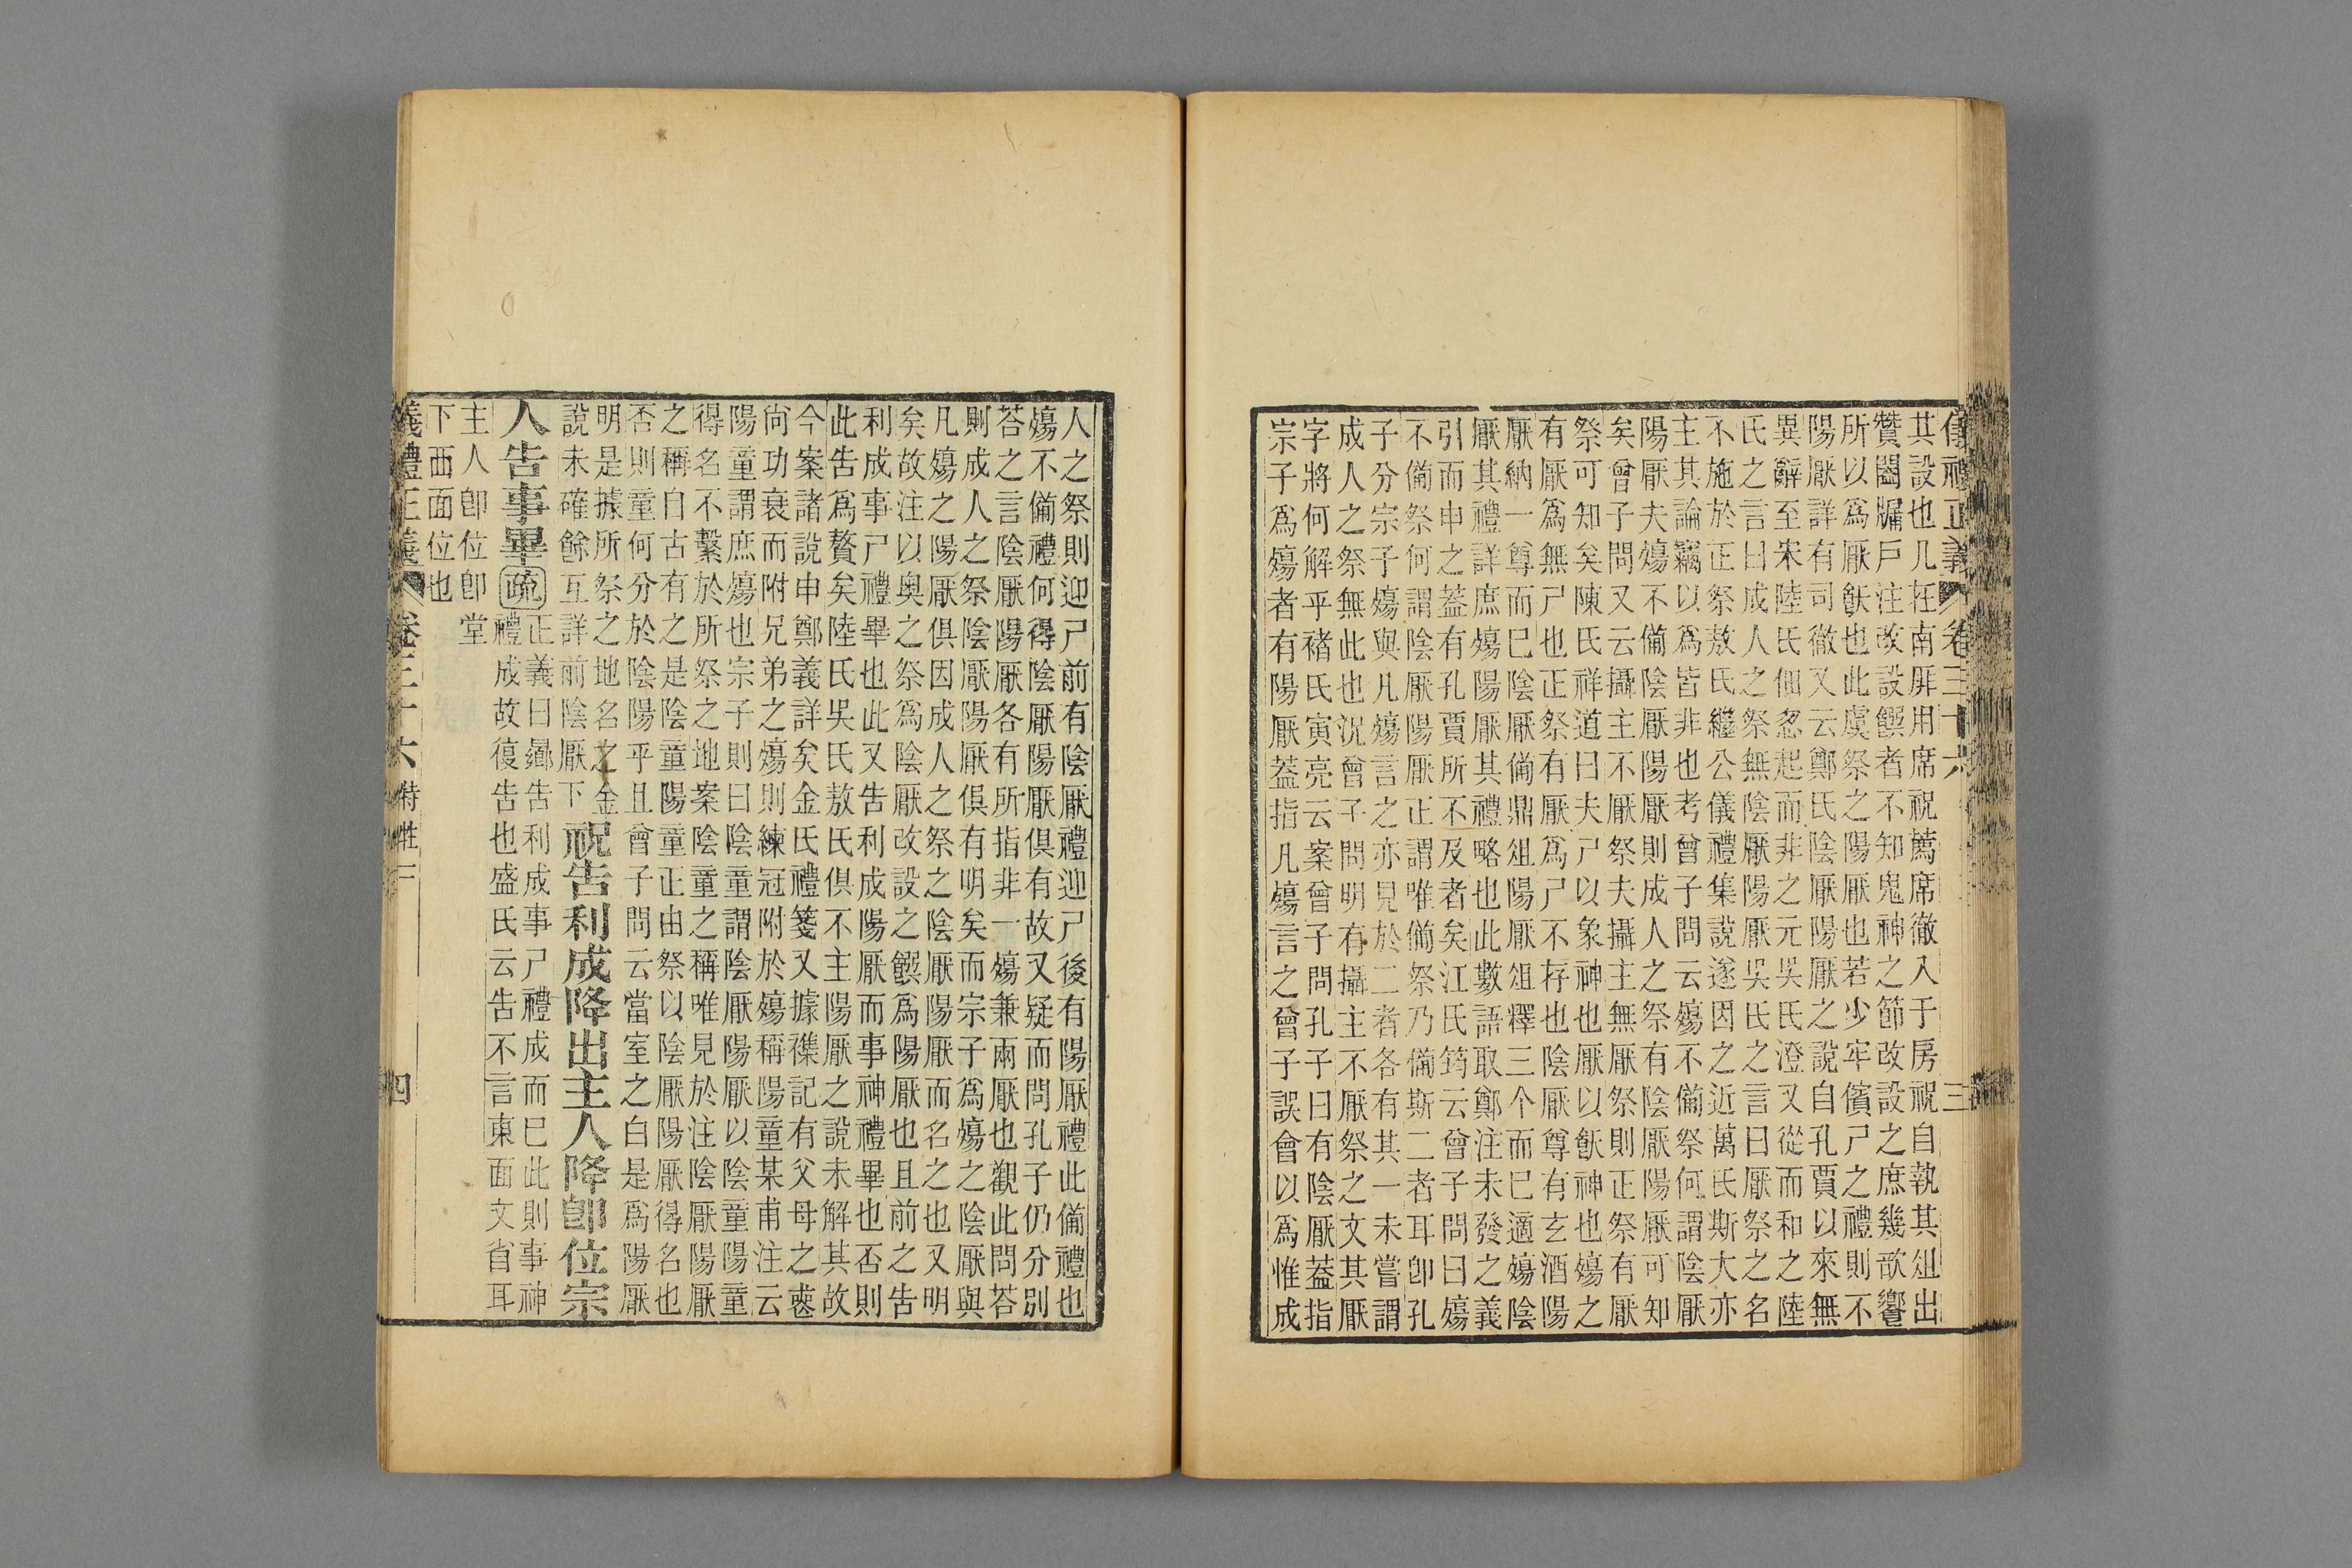 儀禮正義 卷三十六 三
其設也几在南厞用席祝薦席徹入于房祝自執其俎出
贊闔牖戶注改設饌者不知鬼神之節改設之庶幾歆饗
所以爲厭飫也此虞祭之陽厭也若少牢儐尸之禮則不
陽厭詳有司徹又云鄭氏陰厭陽厭之說自孔賈以來無
異辭至宋陸氏佃忽起而非之元吳氏澄又從而和之陸
氏之言曰成人之祭無陰厭陽厭吳氏之言曰厭祭之名
不施於正祭敖氏繼公儀禮集說遂因之近萬氏斯大亦
主其論竊以爲皆非也考曾子問云殤不備祭何謂陰厭
陽厭夫殤不備陰厭陽厭則成人之祭有陰厭陽厭可知
矣曾子問又云攝主不厭祭夫攝主無厭祭則正祭有厭
祭可知矣陳氏祥道曰夫尸以象神也厭以飫神也殤之
有厭爲無尸也正祭有厭爲尸不存也陰厭尊有玄酒陽
厭納一尊而已陰厭備鼎俎陽厭俎釋三个而已適殤陰
厭其禮詳庶殤陽厭其禮略也此數語取鄭注未發之義
引而申之蓋有孔賈所不及者矣江氏筠云曾子問曰殤
不備祭何謂陰厭陽厭正謂唯備祭乃備斯二者耳卽孔
子分宗子殤與凡殤言之亦見於二者各有其一未嘗謂
成人之祭無此也況曾子問明有攝主不厭祭之文其厭
字將何解乎褚氏寅亮云案曾子問孔子曰有陰厭蓋指
宗子爲殤者有陽厭蓋指凡殤言之曾子誤會以爲惟成
人之祭則迎尸前有陰厭禮迎尸後有陽厭禮此備禮也
殤不備禮何得陰厭陽厭俱有故又疑而問孔子仍分別
荅之言陰厭陽厭各有所指非一殤兼兩厭也觀此問荅
則成人之祭陰厭陽厭俱有明矣而宗子爲殤之陰厭與
凡殤之陽厭俱因成人之祭之陰厭陽厭而名之也又明
矣故注以奧之祭爲陰厭改設之饌爲陽厭也且前之告
利成事尸禮畢也此又告利成陽厭而事神禮畢也否則
此告爲贅矣陸氏吳氏敖氏俱不主陽厭之說未解其故
今案諸說申鄭義詳矣金氏禮箋又據襍記有父母之喪
尙功衰而附兄弟之殤則練冠附於殤稱陽童某甫注云
陽童謂庶殤也宗子則曰陰童謂陰厭陽厭以陰童陽童
得名不繫於所祭之地案陰童之稱唯見於注陰厭陽厭
之稱自古有之是陰童陽童正由祭以陰厭陽厭得名也
否則童何分於陰陽乎且曾子問云當室之白是爲陽厭
明是據所祭之地名之金
說未確餘互詳前陰厭下祝告利成降出主人降卽位宗
人告事畢 疏 正義曰鄉告利成事尸禮成而已此則事神
禮成故復告也盛氏云告不言東面文省耳
主人卽位卽堂
下西面位也
儀禮正義 卷三十六 特牲三 四